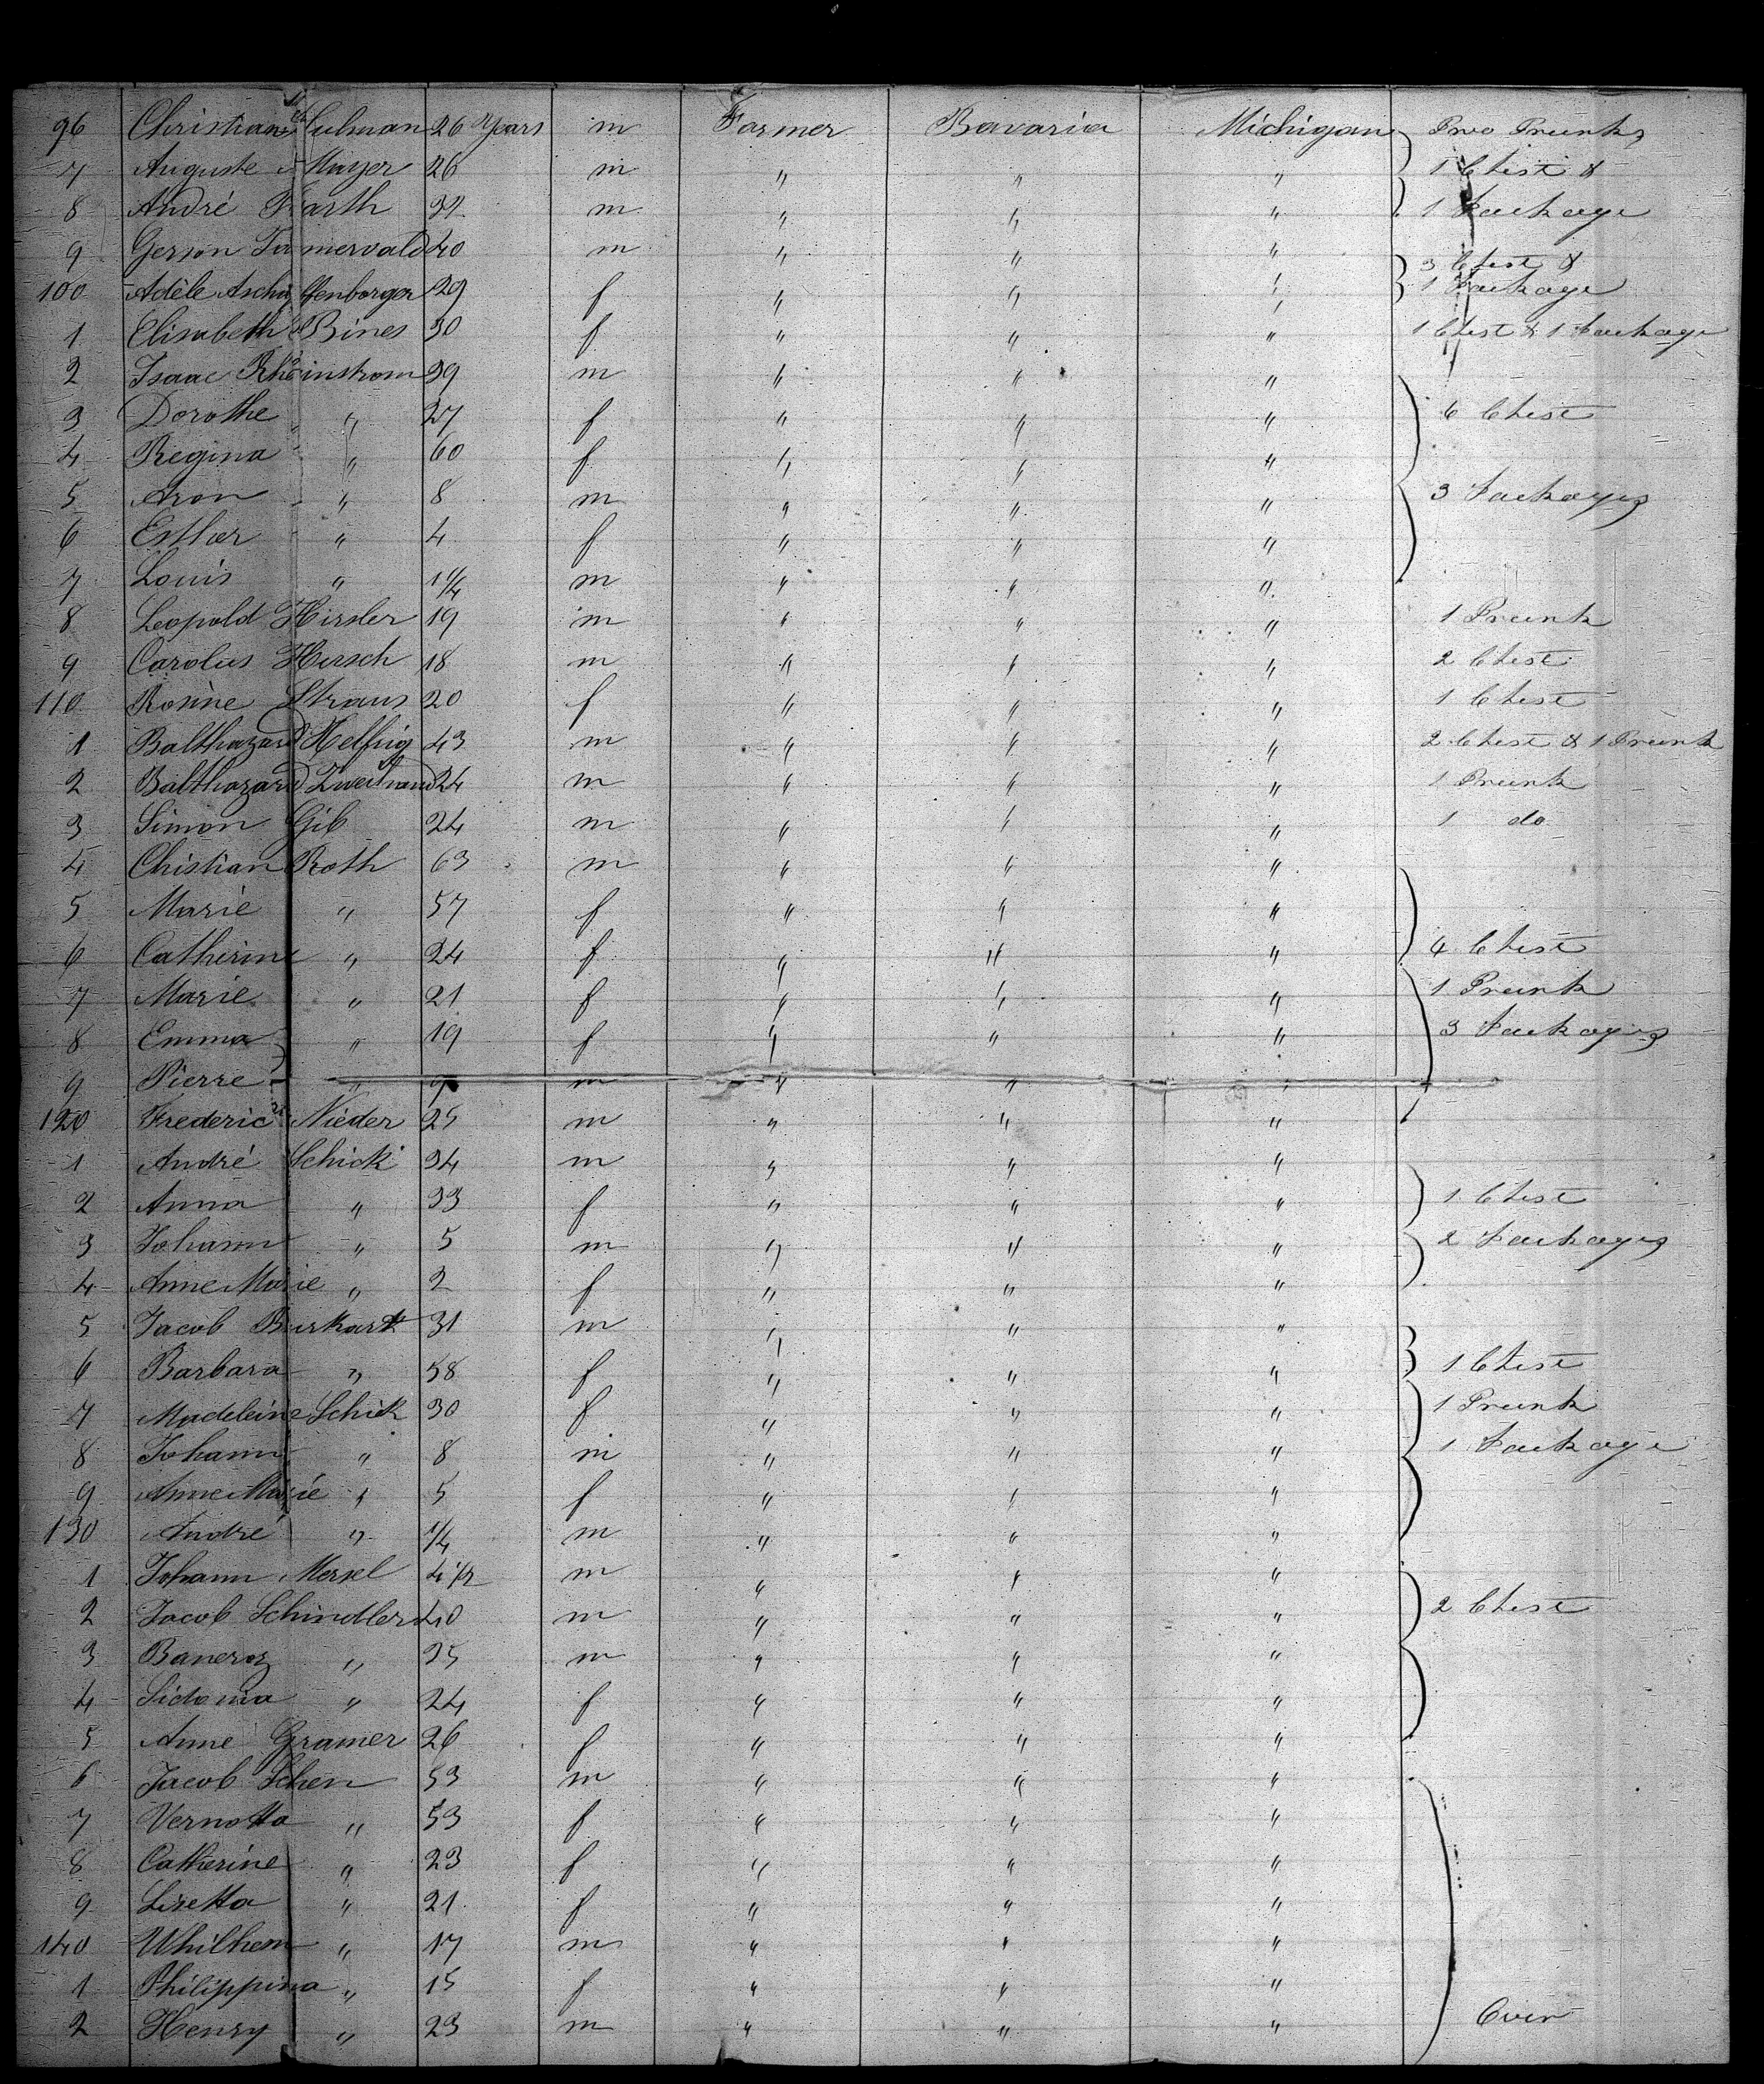 96 Christian Culman 26 Years m Farmer Bavaria Michigan Two Trunks
7 Auguste Mayer 26 m " " " 1 Chest &
8 André Farth 32 m " " " 1 Package
9 Gerson 40 m " " "
3 Chest &
100 Adèle Aschaffenborger 29 f " " " 1 Package
1 Elisabeth Bines 30 f " " " 1 Chest & 1 Package
2 Isaac Rheinstrom 39 m " " "
3 Dorothe " 27 f " " " 6 Chest
4 Regina " 60 f " " "
5 Aron " 8 m " " " 3 Packages
6 Esther " 4 f " " "
7 Louis " 1 1/4 m " " "
8 Leopold Hirsler 19 m " " " 1 Trunk
9 Carolus Hirsch 18 m " " " 2 Chest
110 Rosine Straus 20 f " " " 1 Chest
1 Balthazard Helfrig 43 m " " " 2 Chest & 1 Trunk
2 Balthazard 24 m " " " 1 Trunk
3 Simon Gib 24 m " " " 1 do
4 Chistian Roth 63 m " " "
5 Marie " 57 f " " "
6 Catherine " 24 f " " " 4 Chest
7 Marie " 21 f " " " 1 Trunk
8 Emma " 19 f " " " 3 Packages
9 Pierre " 9 m " " "
120 Frederic Nieder 25 m " " "
1 André Schick 34 m " " "
2 Anna " 33 f " " " 1 Chest
3 Johann " 5 m " " " 2 Packages
4 Anne Marie " 2 f " " "
5 Jacob Burkart 31 m " " "
6 Barbara " 58 f " " " 1 Chest
7 Madeleine Schick 30 f " " " 1 Trunk
8 Johann " 8 m " " " 1 Package
9 Anne Marie " 5 f " " "
130 André " 1/4 m " " "
1 Johann Mersel 4 1/2 m " " "
2 Jacob Schindler 40 m " " " 2 Chest
3 " 25 m " " "
4 Sidonia " 24 f " " "
5 Anne Gramer 26 f " " "
6 Jacob Schen 53 m " " "
7 Vernotta " 53 f " " "
8 Catherine " 23 f " " "
9 Lisetta " 21 f " " "
140 Whilhem " 17 m " " "
1 Philippina " 15 f " " "
2 Henry " 23 m " " " Over